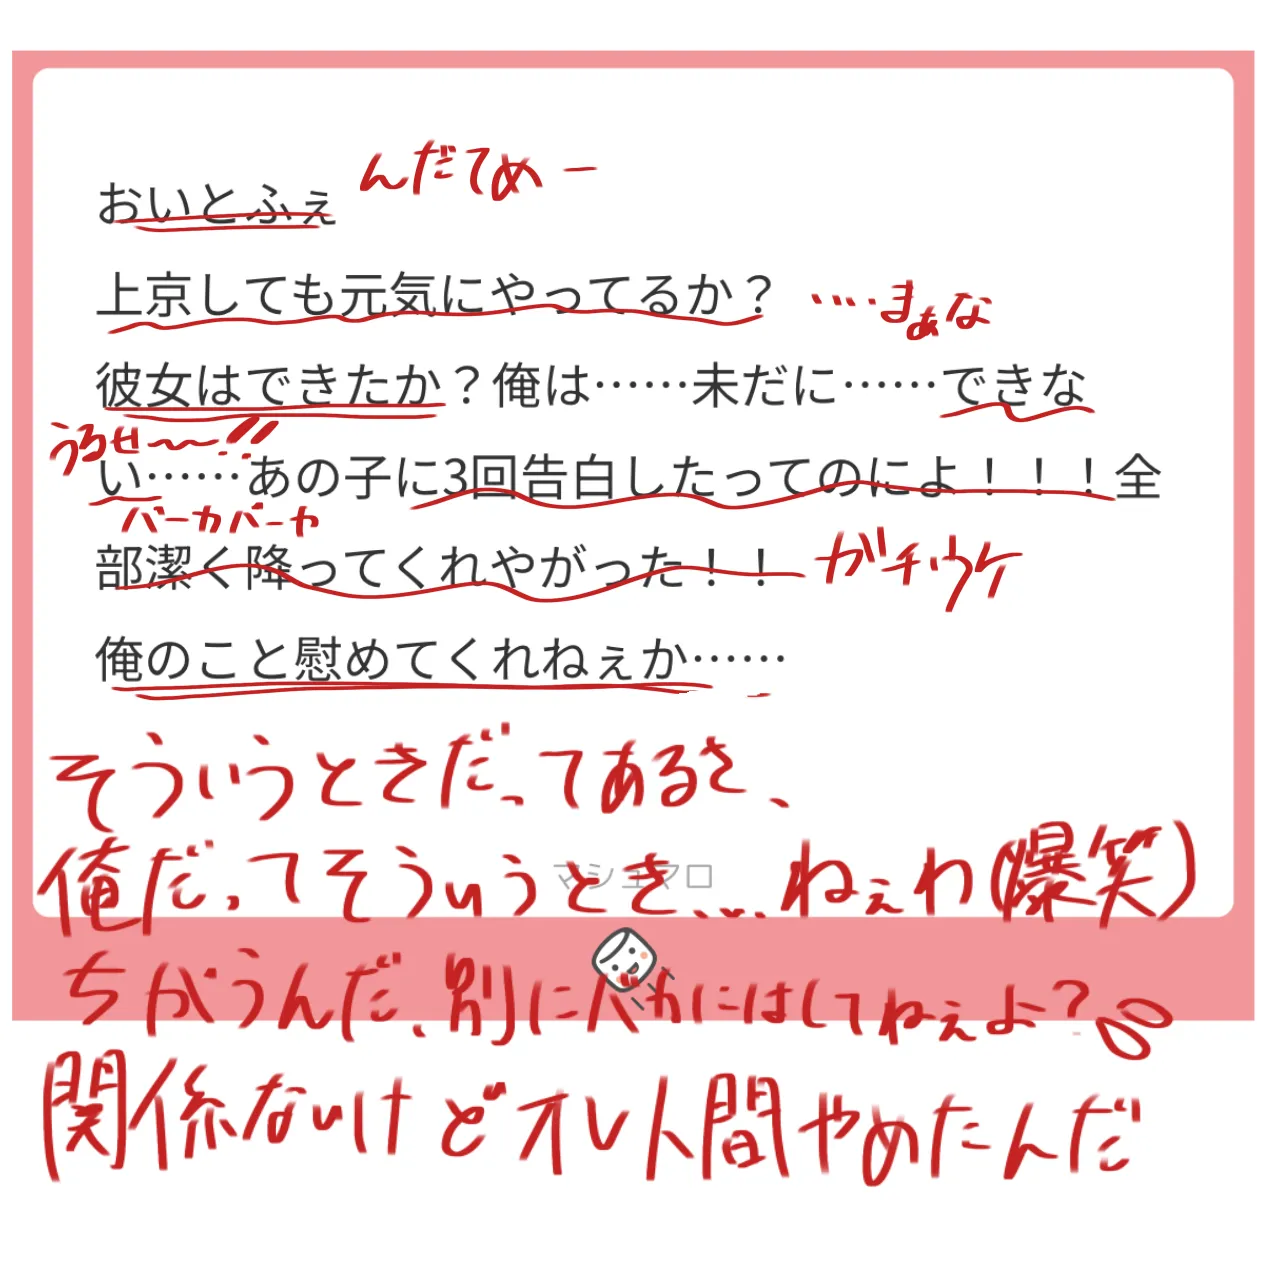 おいとふぇ んだてめー
上京しても元気にやってるか？ ‥‥まぁな
彼女はできたか？俺は……未だに……できな
うるせ〜〜!!
い……あの子に3回告白したってのによ！！！全
バーカバーカ
部潔く降ってくれやがった！！ ガチウケ
俺のこと慰めてくれねぇか……
そういうときだってあるさ、
マシュマロ
俺だってそういうとき、、、ねぇわ(爆笑)
ちがうんだ、別にバカにはしてねぇよ？
関係ないけどオレ人間やめたんだ